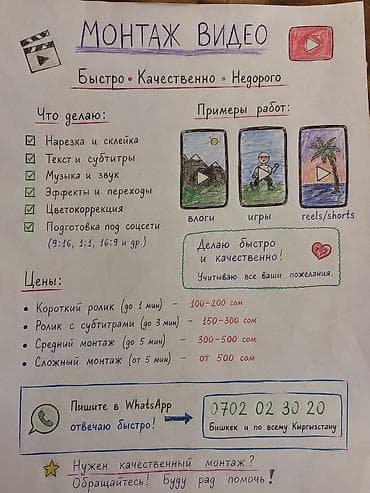 МОНТАЖ ВИДЕО
Быстро • Качественно • Недорого
Что делаю:
Нарезка и склейка
Текст и субтитры
Музыка и звук
Эффекты и переходы
Цветокоррекция
Подготовка под соцсети
(9:16, 1:1, 16:9 и др.)
Примеры работ:
влоги
игры
reels/shorts
Делаю быстро
и качественно!
Учитываю все ваши пожелания.
Цены:
• Короткий ролик (до 1 мин) – 100-200 сом
• Ролик с субтитрами (до 3 мин) – 150-300 сом
• Средний монтаж (до 5 мин) – 300-500 сом
• Сложный монтаж (от 5 мин) – от 500 сом
Пишите в WhatsApp
отвечаю быстро!
0702 02 30 20
Бишкек и по всему Кыргызстану
Нужен качественный монтаж?
Обращайтесь! Буду рад помочь!